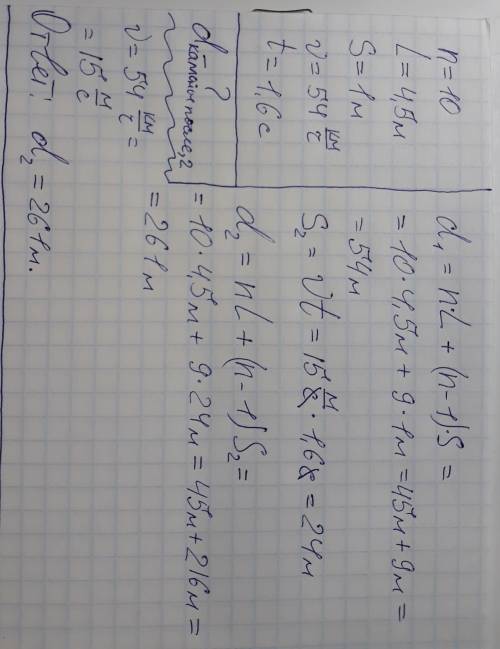 n = 10
L = 4,5м
S = 1м
v = 54 км/ч
t = 1,6с
d - ?
колонны после, 2
v = 54 км/ч =
= 15 м/с
d₁ = n·L + (n-1)·S =
= 10·4,5м + 9·1м = 45м + 9м =
= 54м
S₂ = vt = 15 м/с · 1,6с = 24м
d₂ = nL + (n-1)S₂ =
= 10·4,5м + 9·24м = 45м + 216м =
= 261м
Ответ: d₂ = 261м.